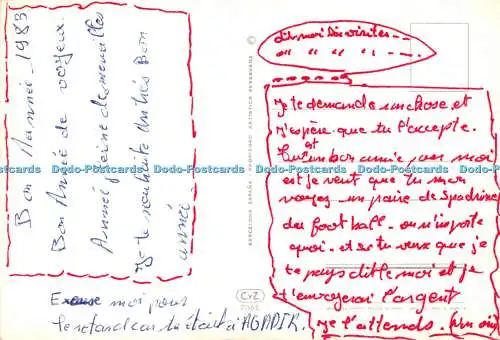 Bon 1 année _ 1983
Bon Année de voyeux
Année pleine de merveilles
Je te souhaite une très Bon
année _
Excuse moi pour
le retard car tu était à AGADIR.
C.y Z
7086
BARCELONA ESPAÑA
dis moi
" " " " " _ _
Je te demande une chose et
j'espère que tu l'accepte.
Tu est un bon amie pour moi
est je veut que tu moi
voyez un paire de Spadrine
du foot ball. ou n'importe
quoi. et si tu veux que je
te pays dit le moi et je
t'envoyerai l'argent
Je l'attends.
Dodo-Postcards Dodo-Postcards Dodo-Postcards Dodo-Postcards Dodo-Postcards Dodo-Postcards